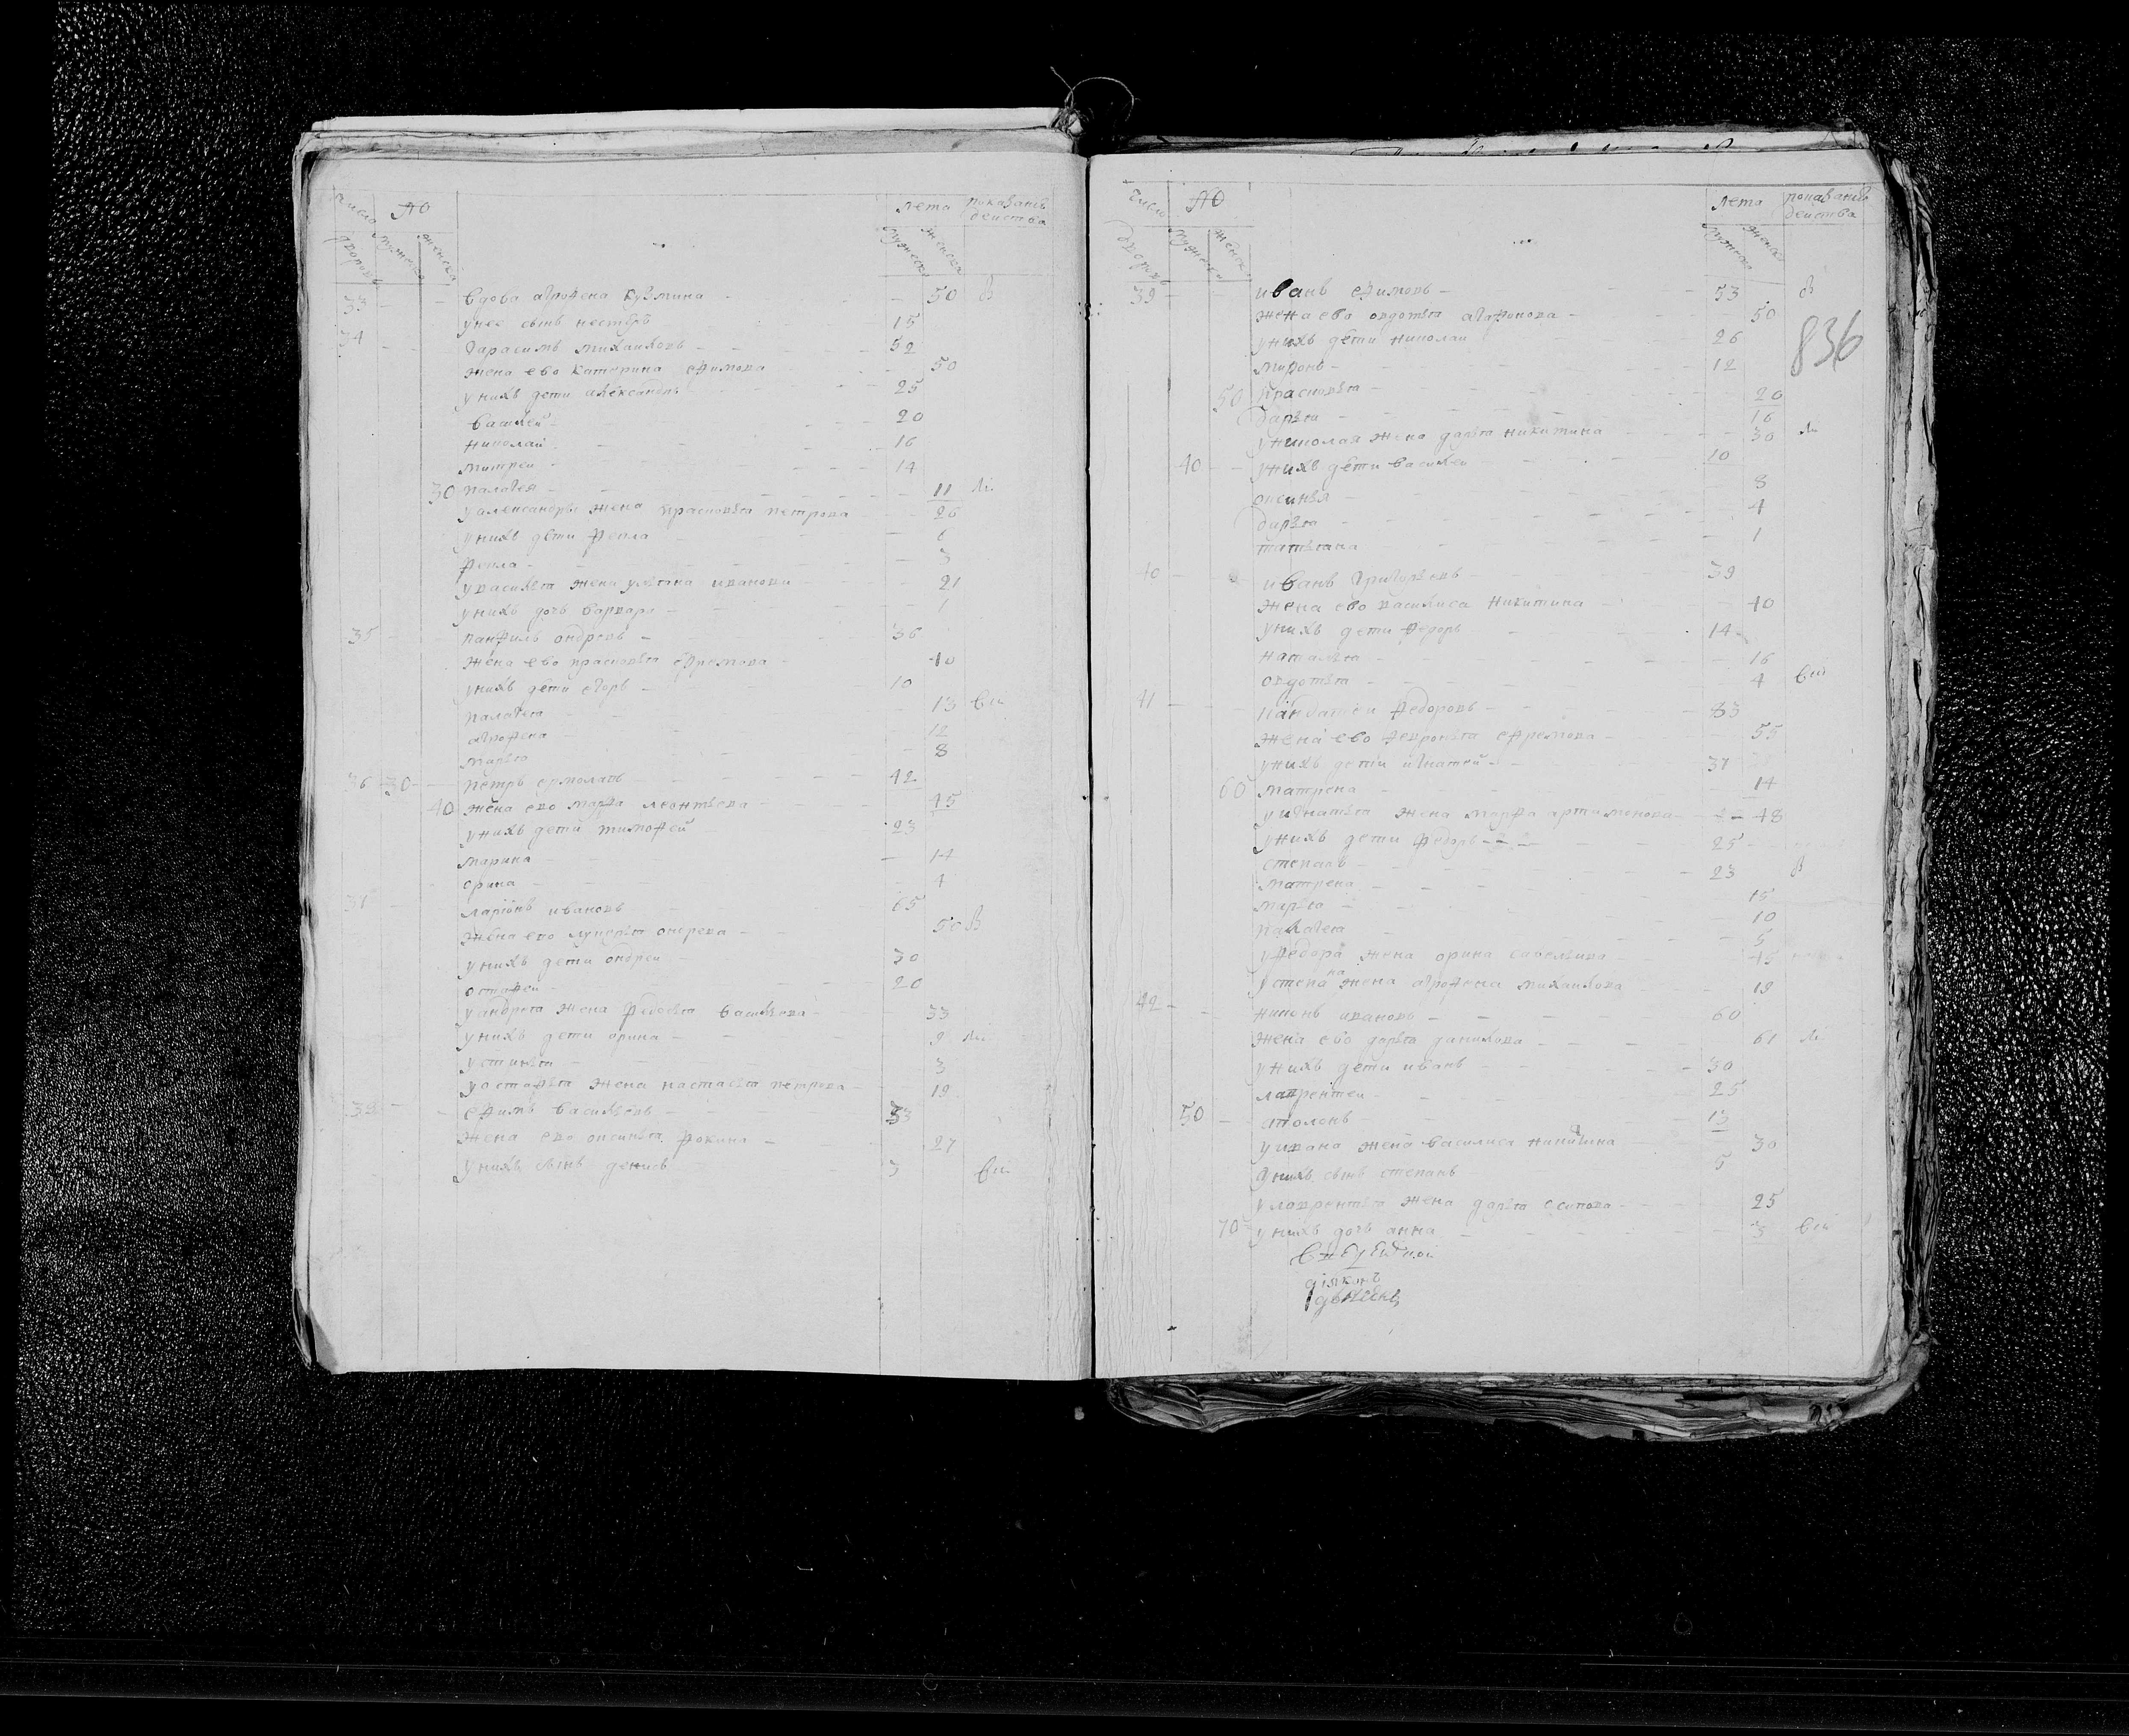 число дворовъ ЛЮ мужеска женска лета мужеска женска показанiе действа
33 вдова агрофена кузмина 50 в
унее сынъ нестеръ 15
34 гарасимъ михаиловъ 52
жена ево катерина ефимова 50
унихъ дети александръ 25
василей 20
николай 16
митреи 14
30 палагея 11 ли
уалександры жена прасковья петрова 26
унихъ дети фекла 6
фекла 3
увасилья жена ульяна иванова 21
унихъ дочь варвара 1
35 панфилъ ондреевъ 36
жена ево прасковья ефремова 40
унихъ дети егоръ 10
палагея 13 вси
агрофена 12
марья 8
36 30 петръ ермолаевъ 42
40 жена ево марфа леонтьева 45
унихъ дети тимофей 23
марина 14
орина 4
ларiонъ ивановъ 65
жена ево лукерья 50 в
унихъ дети ондреи 30
остафеи 20
уандрея жена федосья васильева 33
унихъ дети орина 9 ли
устинья 3
уостафья жена настасья петрова 19
38 ефимъ васильевъ 33
жена ево оксинья фокина 27
унихъ сынъ денисъ 3 вси
число дворовъ мужеска женска лета мужеска женска показанiе действа
39 иванъ ефимовъ 53 в
жена ево овдотья агафонова 50
836
унихъ дети николаи 26
миронъ 12
50 прасковья 20
дарья 16
униколая жена дарья никитина 30 ли
40 унихъ дети василеи 10
оксинья 8
дарья 4
татьяна 1
40 иванъ григорьевъ 39
жена ево василиса никитина 40
унихъ дети федоръ 14
наталья 16
овдотья 4 вси
41 федоровъ 83
жена ево февронья ефремова 55
унихъ дети игнатей 37
60 матрена 14
уигнатья жена марфа артимонова 48
унихъ дети федоръ 25
степанъ 23 в
матрена 15
марья 10
палагея 5
уфедора жена орина савельива
устепана жена агрофена михаилова 19
42 ивановъ 60
жена ево дарья данилова 61 ли
унихъ дети иванъ 30
лаврентеи 25
50 аполонъ 13
уивана жена василиса 30
унихъ сынъ степанъ 5
улаврентья жена дарья осипова 25
70 унихъ дочь анна 3 вси
дiяконъ